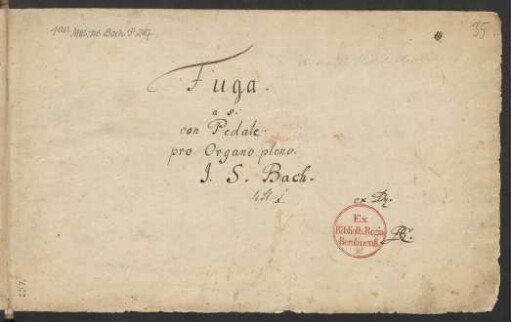 Mus. ms. Bach P 247
35
Fuga.
a 5.
con Pedale.
pro Organo pleno.
J. S. Bach.
ex
Ex
Biblioth. Regia
Berolinensi.